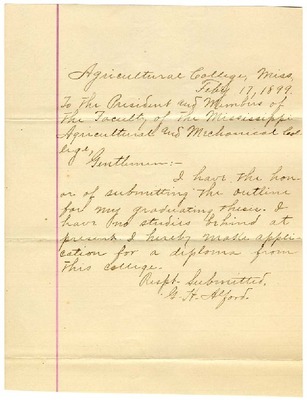 Agricultural College, Miss,
Feby 17, 1899.
To the President and Members of
the Faculty of the Mississippi
Agricultural and Mechanical Col-
lege,
Gentlemen:-
I have the hon-
or of submitting the outline
for my graduating thesis. I
have no studies behind at
present. I hereby make appli-
cation for a diploma from
this college.
Respt. Submitted,
G. H. Alford.